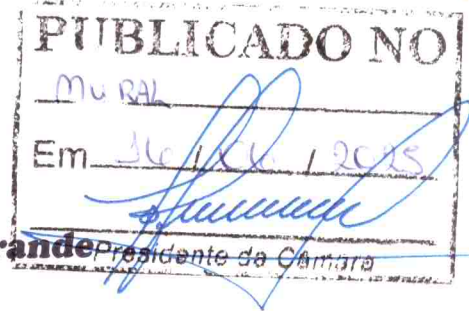 PUBLICADO NO
MURAL
Em 16 / / 2025
rande Presidente da Câmara